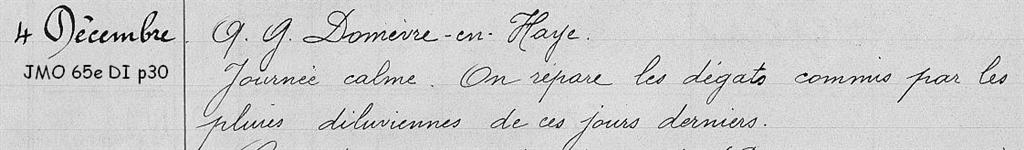 4 Décembre. Q. G. Domèvre-en-Haye.
JMO 65e DI p30
Journée calme. On répare les dégats commis par les
pluies diluviennes de ces jours derniers.